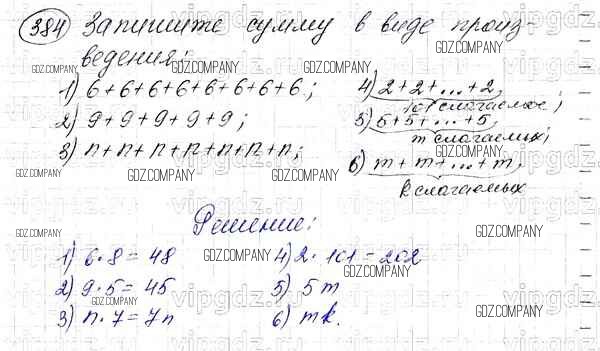 384 Запишите сумму в виде произ-
ведения:
1) 6+6+6+6+6+6+6+6;
2) 9+9+9+9+9;
3) n+n+n+n+n+n+n;
4) 2+2+...+2,
101 слагаемое;
5) 5+5+...+5,
m слагаемых;
6) m+m+...+m,
k слагаемых
Решение:
1) 6·8=48
2) 9·5=45
3) n·7=7n
4) 2·101=202
5) 5m
6) mk.
GDZ.COMPANY
vipgdz.ru